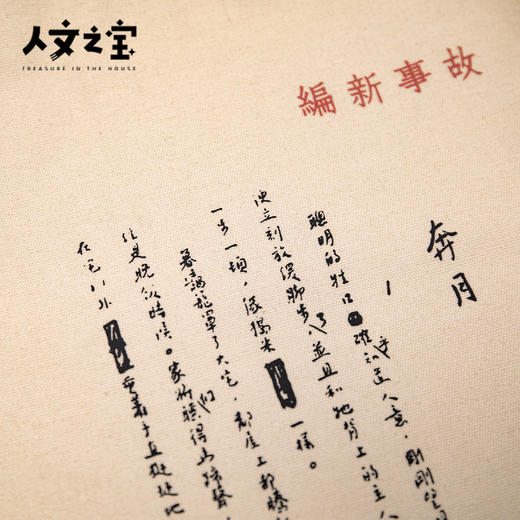 人文之宝
TREASURE IN THE HOUSE
故事新編
奔月
一
聰明的牲口確乎知道人意，剛剛望
便立刻放緩脚步了，並且和牠背上的主人
一步一頓，像搗米一樣。
暮靄籠罩了大宅，鄰屋上都騰
經是晚飯時候。家將們聽得馬蹄聲
在宅门外垂着手直挺挺地